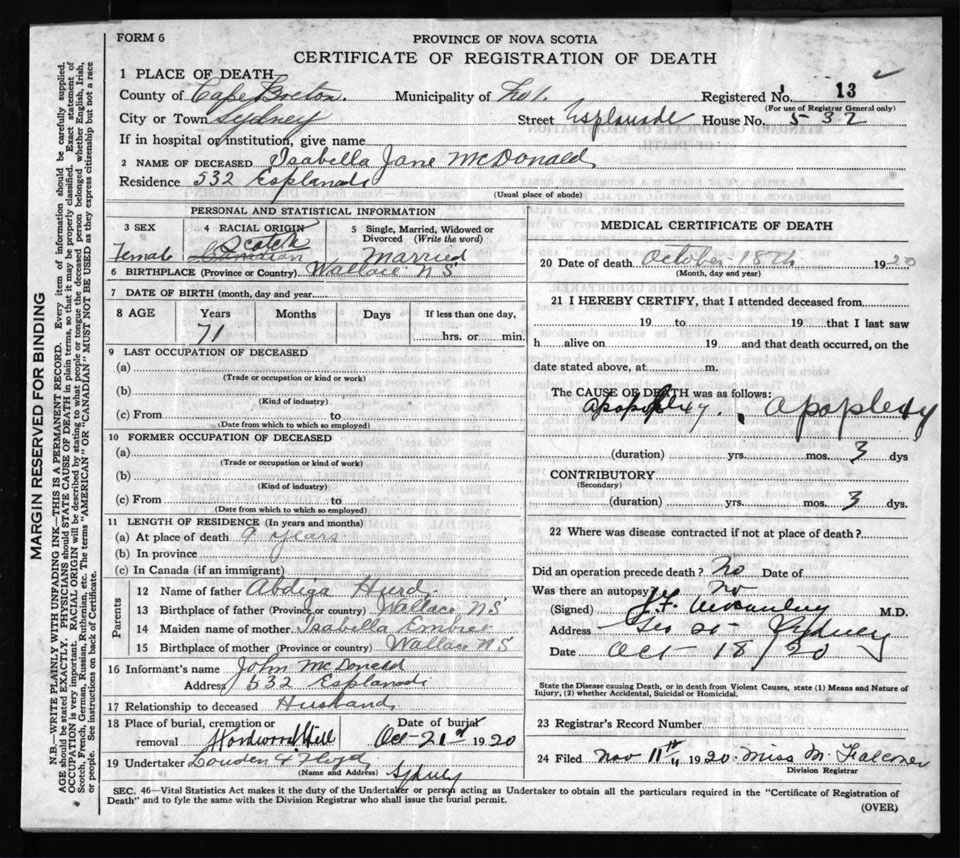 FORM 6
PROVINCE OF NOVA SCOTIA
CERTIFICATE OF REGISTRATION OF DEATH
1 PLACE OF DEATH
County of Cape Breton Municipality of No 1. Registered No. 13
(For use of Registrar General only)
City or Town Sydney Street Esplanade House No. 532
If in hospital or institution, give name
2 NAME OF DECEASED Isabella Jane McDonald
Residence 532 Esplanade
(Usual place of abode)
PERSONAL AND STATISTICAL INFORMATION
3 SEX 4 RACIAL ORIGIN 5 Single, Married, Widowed or Divorced (Write the word)
Scotch
Female Canadian Married
6 BIRTHPLACE (Province or Country) Wallace N S
7 DATE OF BIRTH (month, day and year)
8 AGE Years Months Days If less than one day,
71 hrs. or min.
9 LAST OCCUPATION OF DECEASED
(a)
(Trade or occupation or kind or work)
(b)
(Kind of industry)
(c) From to
(Date from which to which so employed)
10 FORMER OCCUPATION OF DECEASED
(a)
(Trade or occupation or kind of work)
(b)
(Kind of industry)
(c) From to
(Date from which to which so employed)
11 LENGTH OF RESIDENCE (In years and months)
(a) At place of death 9 years
(b) In province
(c) In Canada (if an immigrant)
Parents
12 Name of father Abdiga Hurd
13 Birthplace of father (Province or country) Wallace NS
14 Maiden name of mother Isabella Embree
15 Birthplace of mother (Province or country) Wallace N S
16 Informant's name John McDonald
Address 532 Esplanade
17 Relationship to deceased Husband
18 Place of burial, cremation or removal Hardwood Hill Date of burial Oct-21st 1920
19 Undertaker Louden & Sydney
(Name and Address)
MEDICAL CERTIFICATE OF DEATH
20 Date of death October 18th 1920
(Month, day and year)
21 I HEREBY CERTIFY, that I attended deceased from
19 to 19 that I last saw
h alive on 19 and that death occurred, on the
date stated above, at m.
The CAUSE OF DEATH was as follows:
apoplexy. apoplexy
(duration) yrs. mos. 3 dys
CONTRIBUTORY
(Secondary)
(duration) yrs. mos. 3 dys.
22 Where was disease contracted if not at place of death?
Did an operation precede death? No Date of
Was there an autopsy No
(Signed) M.D.
Address Geo St Sydney
Date Oct 18/20
State the Disease causing Death, or in death from Violent Causes, state (1) Means and Nature of Injury, (2) whether Accidental, Suicidal or Homicidal.
23 Registrar's Record Number
24 Filed Nov 11th 1920. Miss M Falconer
Division Registrar
SEC. 46—Vital Statistics Act makes it the duty of the Undertaker or person acting as Undertaker to obtain all the particulars required in the "Certificate of Registration of
Death" and to fyle the same with the Division Registrar who shall issue the burial permit.
(OVER)
MARGIN RESERVED FOR BINDING
N.B.—WRITE PLAINLY WITH UNFADING INK—THIS IS A PERMANENT RECORD. Every item of information should be carefully supplied.
AGE should be stated EXACTLY. PHYSICIANS should STATE CAUSE OF DEATH in plain terms, so that it may be properly classified. Exact statement of
OCCUPATION is very important. RACIAL ORIGIN will be described by stating to what people or tongue the deceased person belonged whether English, Irish,
Scotch, French, German, Russian, Ruthenian, etc. The terms "AMERICAN" OR "CANADIAN" MUST NOT BE USED as they express citizenship but not a race
or people. See instructions on back of Certificate.